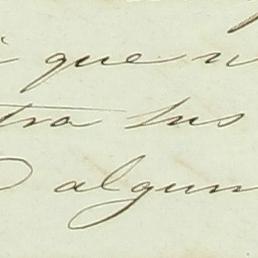 que
tra sus
algun